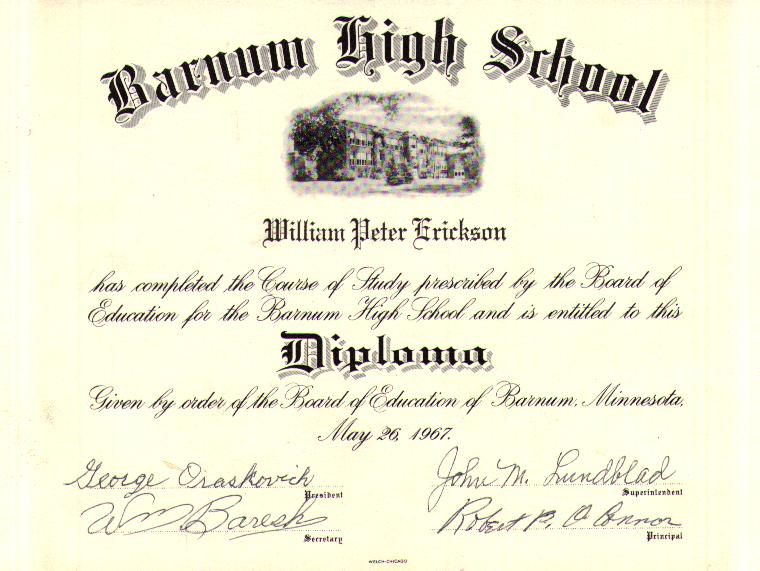 Barnum High School
William Peter Erickson
has completed the Course of Study prescribed by the Board of
Education for the Barnum High School and is entitled to this
Diploma
Given by order of the Board of Education of Barnum, Minnesota,
May 26, 1967.
George Oraskovich
President
John M. Lundblad
Superintendent
Wm Baresh
Secretary
Robert P. O Connor
Principal
WELCH-CHICAGO